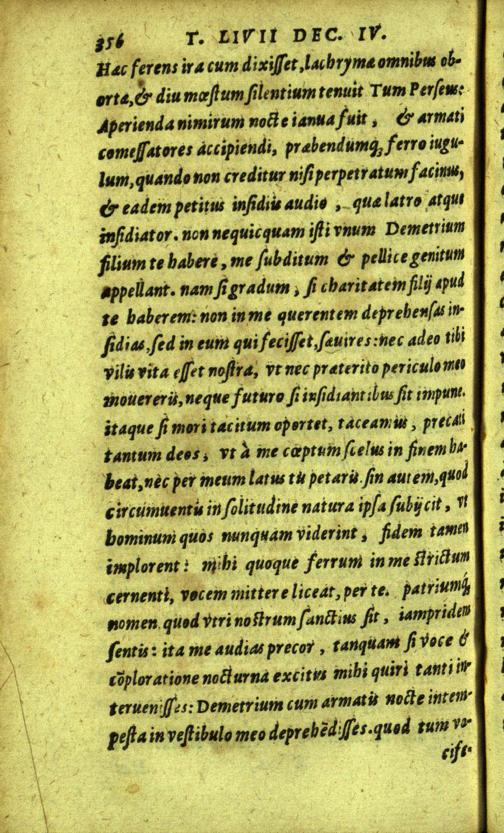 356 T. LIVII DEC. IV.
Hac ferens ira cum dixisset, lachrymæ omnibus ob-
ortæ, & diu mœstum silentium tenuit Tum Perseus:
Aperienda nimirum nocte ianua fuit, & armati
comessatores accipiendi, præbendumq; ferro iugu-
lum, quando non creditur nisi perpetratum facinus,
& eadem petitus insidiis audio, quæ latro atque
insidiator. non nequicquam isti vnum Demetrium
filium te habere, me subditum & pellice genitum
appellant. nam si gradum, si charitatem filij apud
te haberem: non in me querentem deprehensas in-
sidias, sed in eum qui fecisset, sæuires: nec adeo tibi
vilis vita esset nostra, vt nec præterito periculo meo
mouereris, neque futuro si insidiantibus sit impune.
itaque si mori tacitum oportet, taceamus, precati
tantum deos, vt à me cœptum scelus in finem ha-
beat, nec per meum latus tu petaris. sin autem, quod
circumuentis in solitudine natura ipsa subijcit, vt
hominum quos nunquam viderint, fidem tamen
implorent: mihi quoque ferrum in me strictum
cernenti, vocem mittere liceat, per te. patriumq;
nomen quod vtri nostrum sanctius sit, iampridem
sentis: ita me audias precor, tanquam si voce &
cōploratione nocturna excitus mihi quiri tanti in-
teruenisses: Demetrium cum armatis nocte intem-
pesta in vestibulo meo deprehēdisses. quod tum vo-
cife-